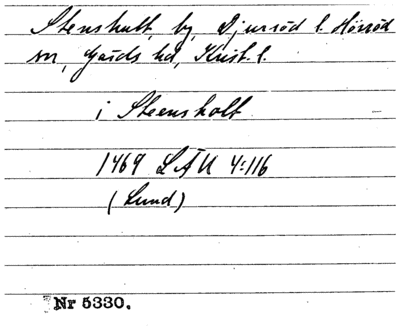 Stenshult, by, Djurröd l. Hörröd
sn, Gärds hd, Krist. l.
i Steensholt
1469 LÄU 4:116
(Lund)
Nr 5330.